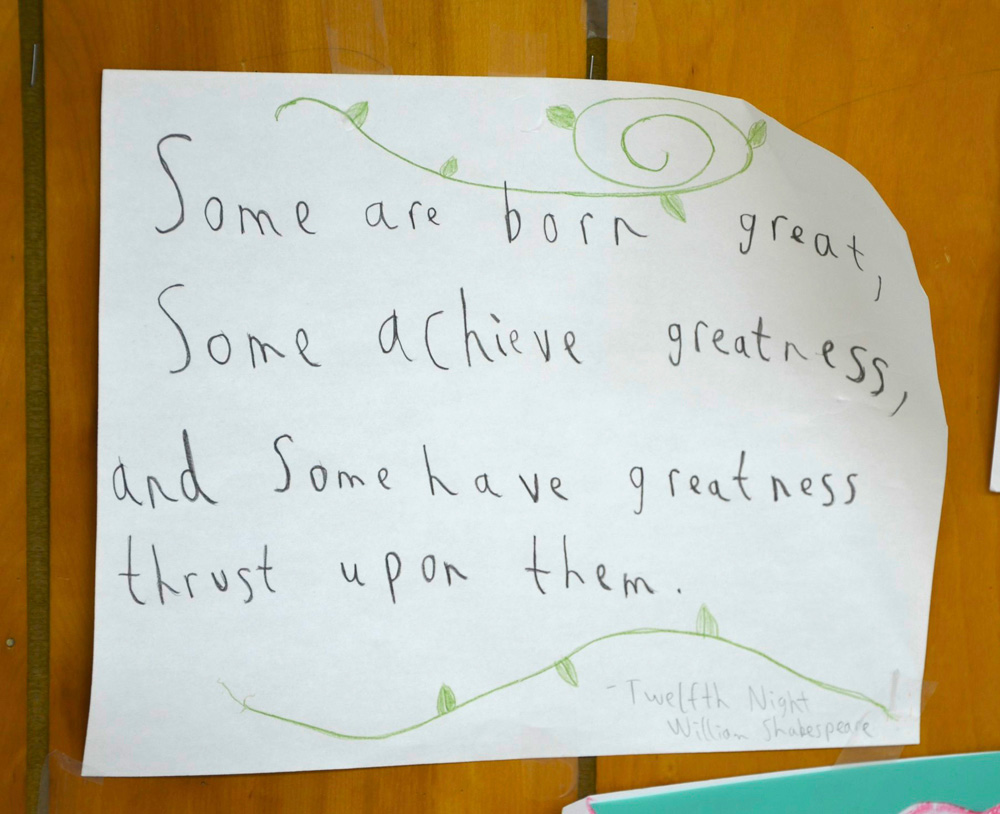 Some are born great,
Some achieve greatness,
and Some have greatness
thrust upon them.
- Twelfth Night
William Shakespeare